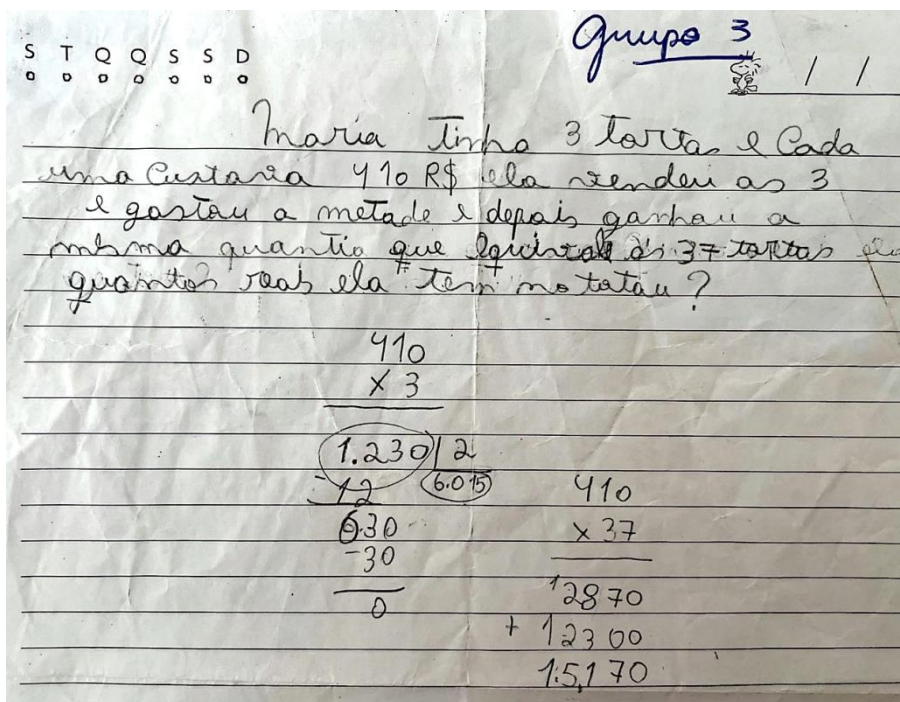 Grupo 3
S T Q Q S S D
/ /
Maria Tinha 3 tortas e Cada
uma Custava 410 R$ ela vendeu as 3
e gastou a metade e depois ganhou a
mesma quantia que equivale ás 37 tortas ela
quantos reais ela tem no totau?
410
x 3
1.230 2
-12 6.015
030
-30
0
410
x 37
12870
+ 12300
15,170